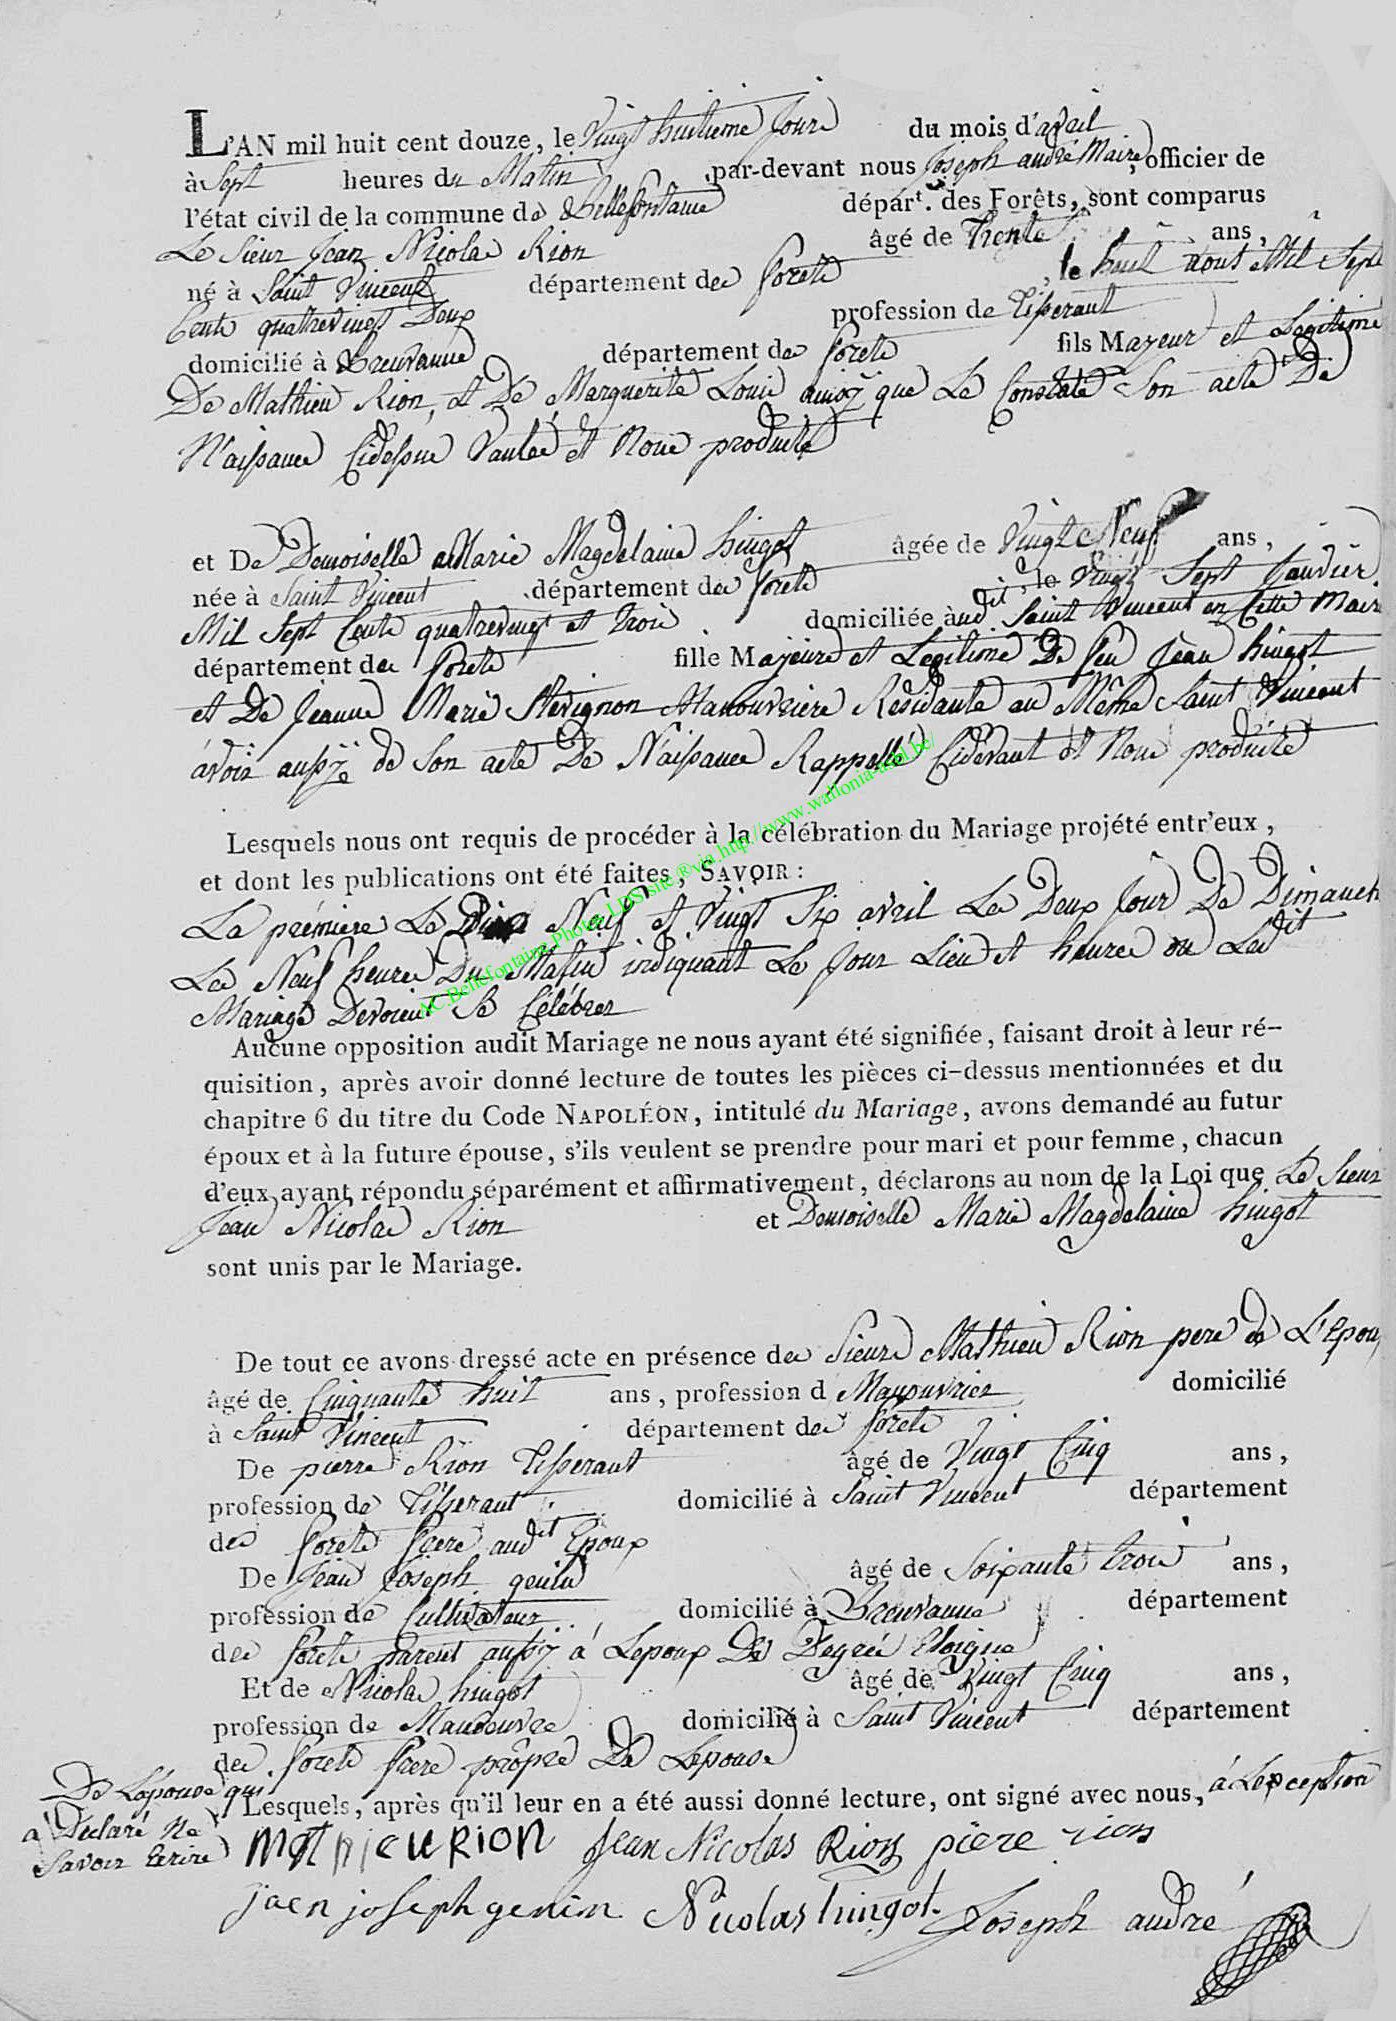 L'AN mil huit cent douze, le Vingt huitieme Jour du mois d'avril
à Sept heures du Matin par-devant nous Joseph andré Maire, officier de
l'état civil de la commune de Bellefontaine départ. des Forêts, sont comparus
Le Sieur Jean Nicolas Rion âgé de Trente ans,
né à Saint Vincent département des forets, le huit aout Mil Sept
Cents quatrevingt Deux profession de Tisserant
domicilié à Breuvanne département des forets fils Majeur et Legitime
De Mathieu Rion, et De Marguerite Louis ainsy que Le Constate Son acte De
N'aissance Cidessus Vantée et Nous produite
et De Demoiselle Marie Magdelaine hingot âgée de Vingt Neuf ans,
née à Saint Vincent département des forets, le Vingt Sept Janvier
Mil Sept Cents quatrevingt et trois domiciliée audit Saint Vincent en Cette Mairie
département des forets fille Majeure et Legitime De feu Jean hingot
et De Jeanne Marie Stévignon Manouvriere Residante au Même Saint Vincent
avoir aussy de Son acte De N'aissance Rappellé Cidevant et Nous produite
Lesquels nous ont requis de procéder à la célébration du Mariage projété entr'eux,
et dont les publications ont été faites, SAVOIR :
La prémiere Le Dix Neuf et Vingt Six avril Les Deux Jour De Dimanche
Les Neuf heures Du Matin indiquant Le Jour Lieu et heures ou Ledit
Mariage Devoient Se Célébrer
Aucune opposition audit Mariage ne nous ayant été signifiée, faisant droit à leur ré-
quisition, après avoir donné lecture de toutes les pièces ci-dessus mentionnées et du
chapitre 6 du titre du Code NAPOLÉON, intitulé du Mariage, avons demandé au futur
époux et à la future épouse, s'ils veulent se prendre pour mari et pour femme, chacun
d'eux ayant répondu séparément et affirmativement, déclarons au nom de la Loi que Le Sieur
Jean Nicolas Rion et Demoiselle Marie Magdelaine hingot
sont unis par le Mariage.
De tout ce avons dressé acte en présence des Sieurs Mathieu Rion pere de L'Epoux
âgé de Cinquante huit ans, profession d Manouvrier domicilié
à Saint Vincent département des forets
De pierre Rion Tisserant âgé de Vingt Cinq ans,
profession de Tisserant domicilié à Saint Vincent département
des forets frere audit Epoux
De Jean Joseph genin âgé de Soixante trois ans,
profession de Cultivateur domicilié à Breuvanne département
des forets parent aussy á Lepoux De Degrée Eloigné
Et de Nicolas hingot âgé de Vingt Cinq ans,
profession de Manoeuvre domicilié à Saint Vincent département
des forets frere propre De Lepouse
Lesquels, après qu'il leur en a été aussi donné lecture, ont signé avec nous, á Lexception
De Lépouse qui
a Déclaré Ne
Savoir Ecrire
Mathieu RION Jean Nicolas Rion piere rion
jaen joseph genin Nicolas hingot Joseph andré
AC Bellefontaine Photos LDS site ® via http://www.wallonia-asbl.be/